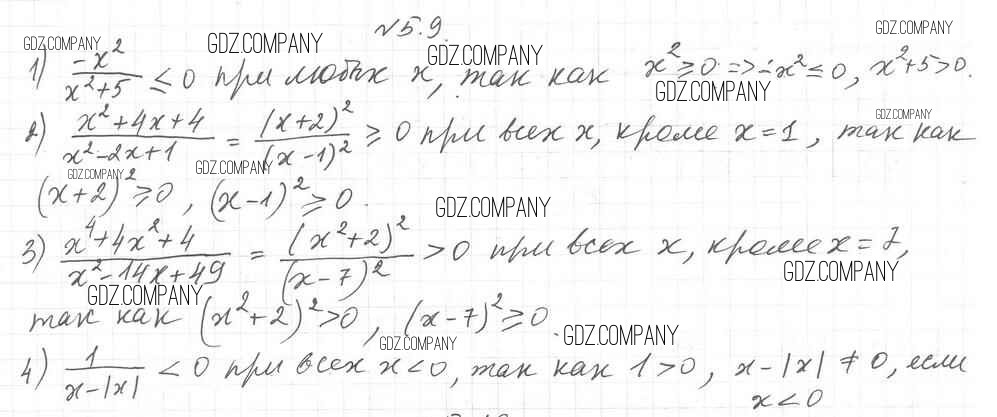 №5.9.
GDZ.COMPANY GDZ.COMPANY GDZ.COMPANY GDZ.COMPANY
1) -x²/(x²+5) ≤ 0 при любых x, так как x² ≥ 0 => -x² ≤ 0, x²+5 > 0.
GDZ.COMPANY GDZ.COMPANY
2) (x²+4x+4)/(x²-2x+1) = (x+2)²/(x-1)² ≥ 0 при всех x, кроме x=1, так как
GDZ.COMPANY GDZ.COMPANY
(x+2)² ≥ 0, (x-1)² ≥ 0.
GDZ.COMPANY
3) (x⁴+4x²+4)/(x²-14x+49) = (x²+2)²/(x-7)² > 0 при всех x, кроме x=7,
GDZ.COMPANY GDZ.COMPANY
так как (x²+2)² > 0, (x-7)² ≥ 0.
GDZ.COMPANY GDZ.COMPANY
4) 1/(x-|x|) < 0 при всех x<0, так как 1>0, x-|x| ≠ 0, если
x<0